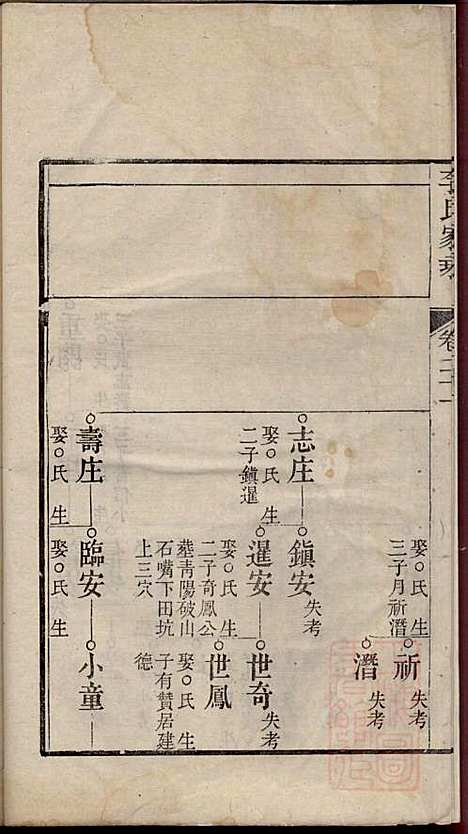 李氏家乘
卷二十一
娶○氏 生
三子月祈潛
祈 失考
潛 失考
志庄
娶○氏 生
二子鎮暹
鎮安 失考
暹安
娶○氏 生
二子奇鳳公
塟青陽破山
石嘴下田坑
上三穴
世奇 失考
世鳳
娶○氏 生
子有贊居建
德
壽庄
娶○氏 生
臨安
娶○氏 生
小童